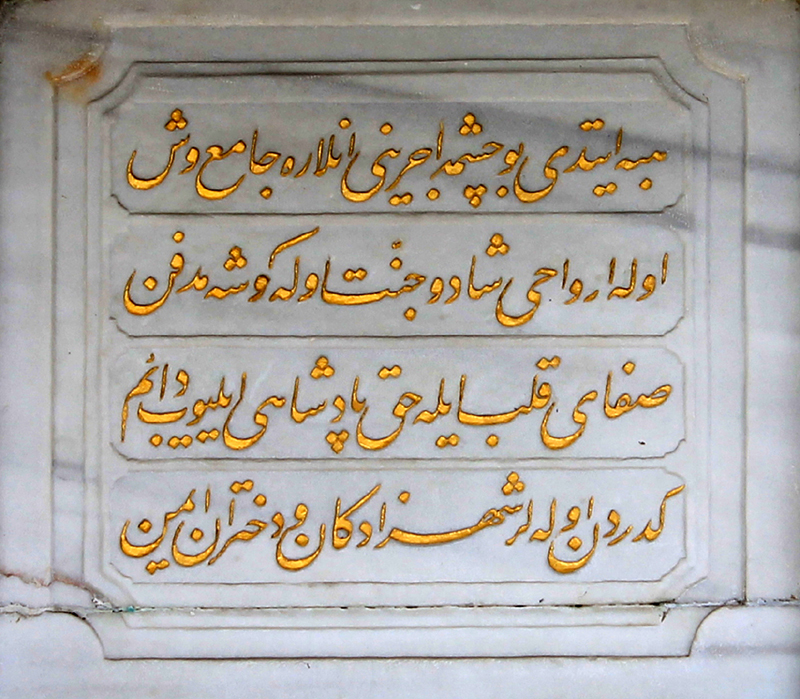 هبه ایتدی بو چشمه اجرینی انلاره جامع وش
اوله ارواحی شاد و جنّت اوله کوشه مدفن
صفای قلب ایله حق پادشاهی ایلیوب دائم
کدردن اوله لر شهزادکان و دختران امین